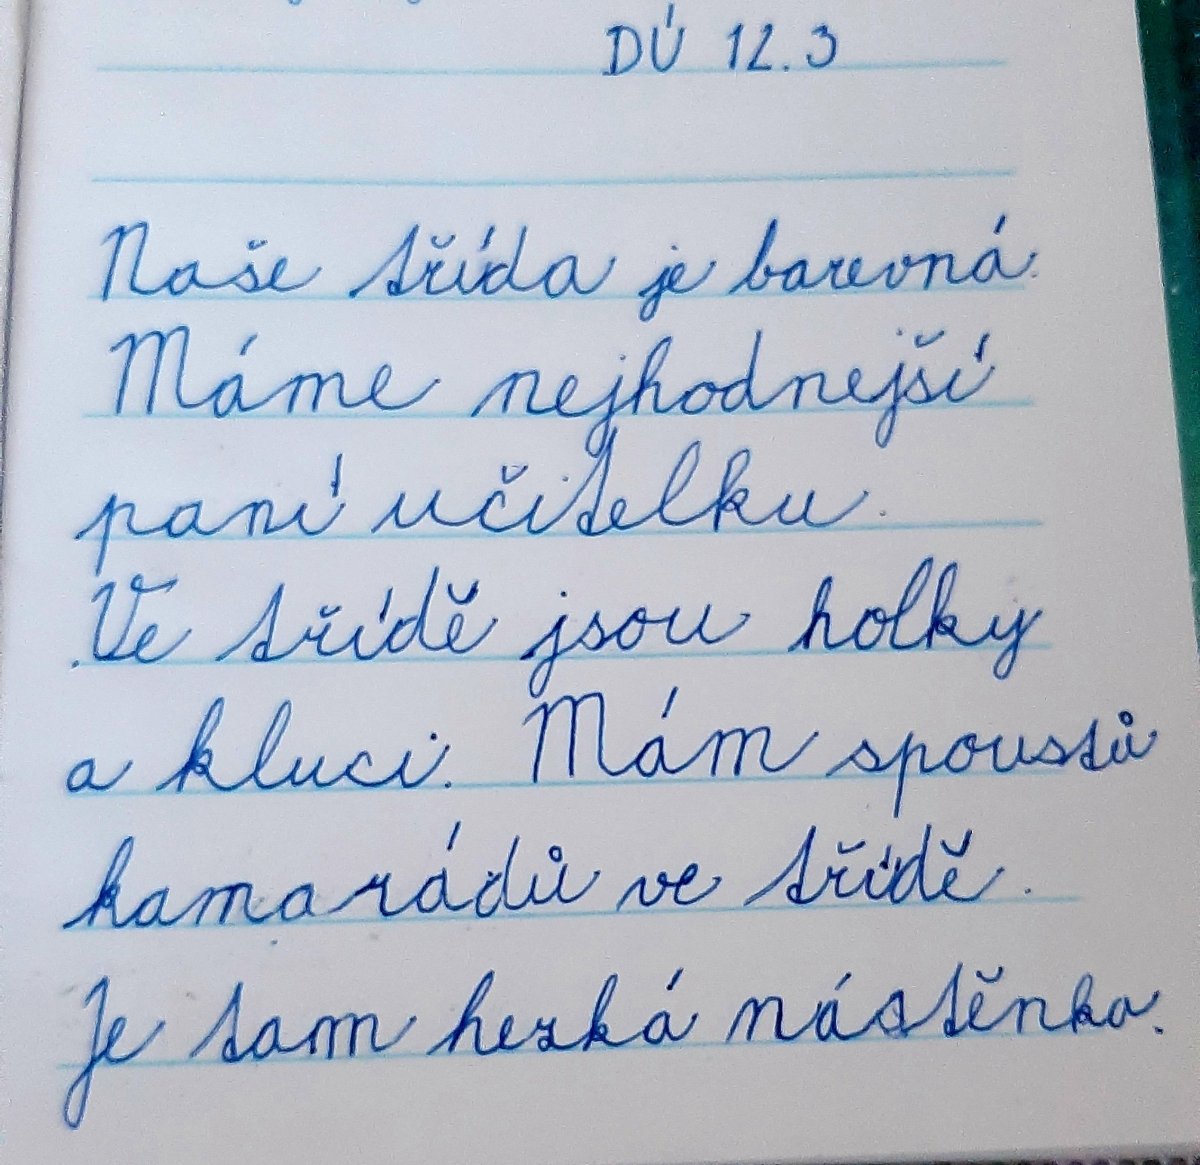 DÚ 12.3
Naše třída je barevná.
Máme nejhodnejší
paní učitelku.
Ve třídě jsou holky
a kluci. Mám spoustů
kamarádů ve třídě.
Je tam hezká nástěnka.